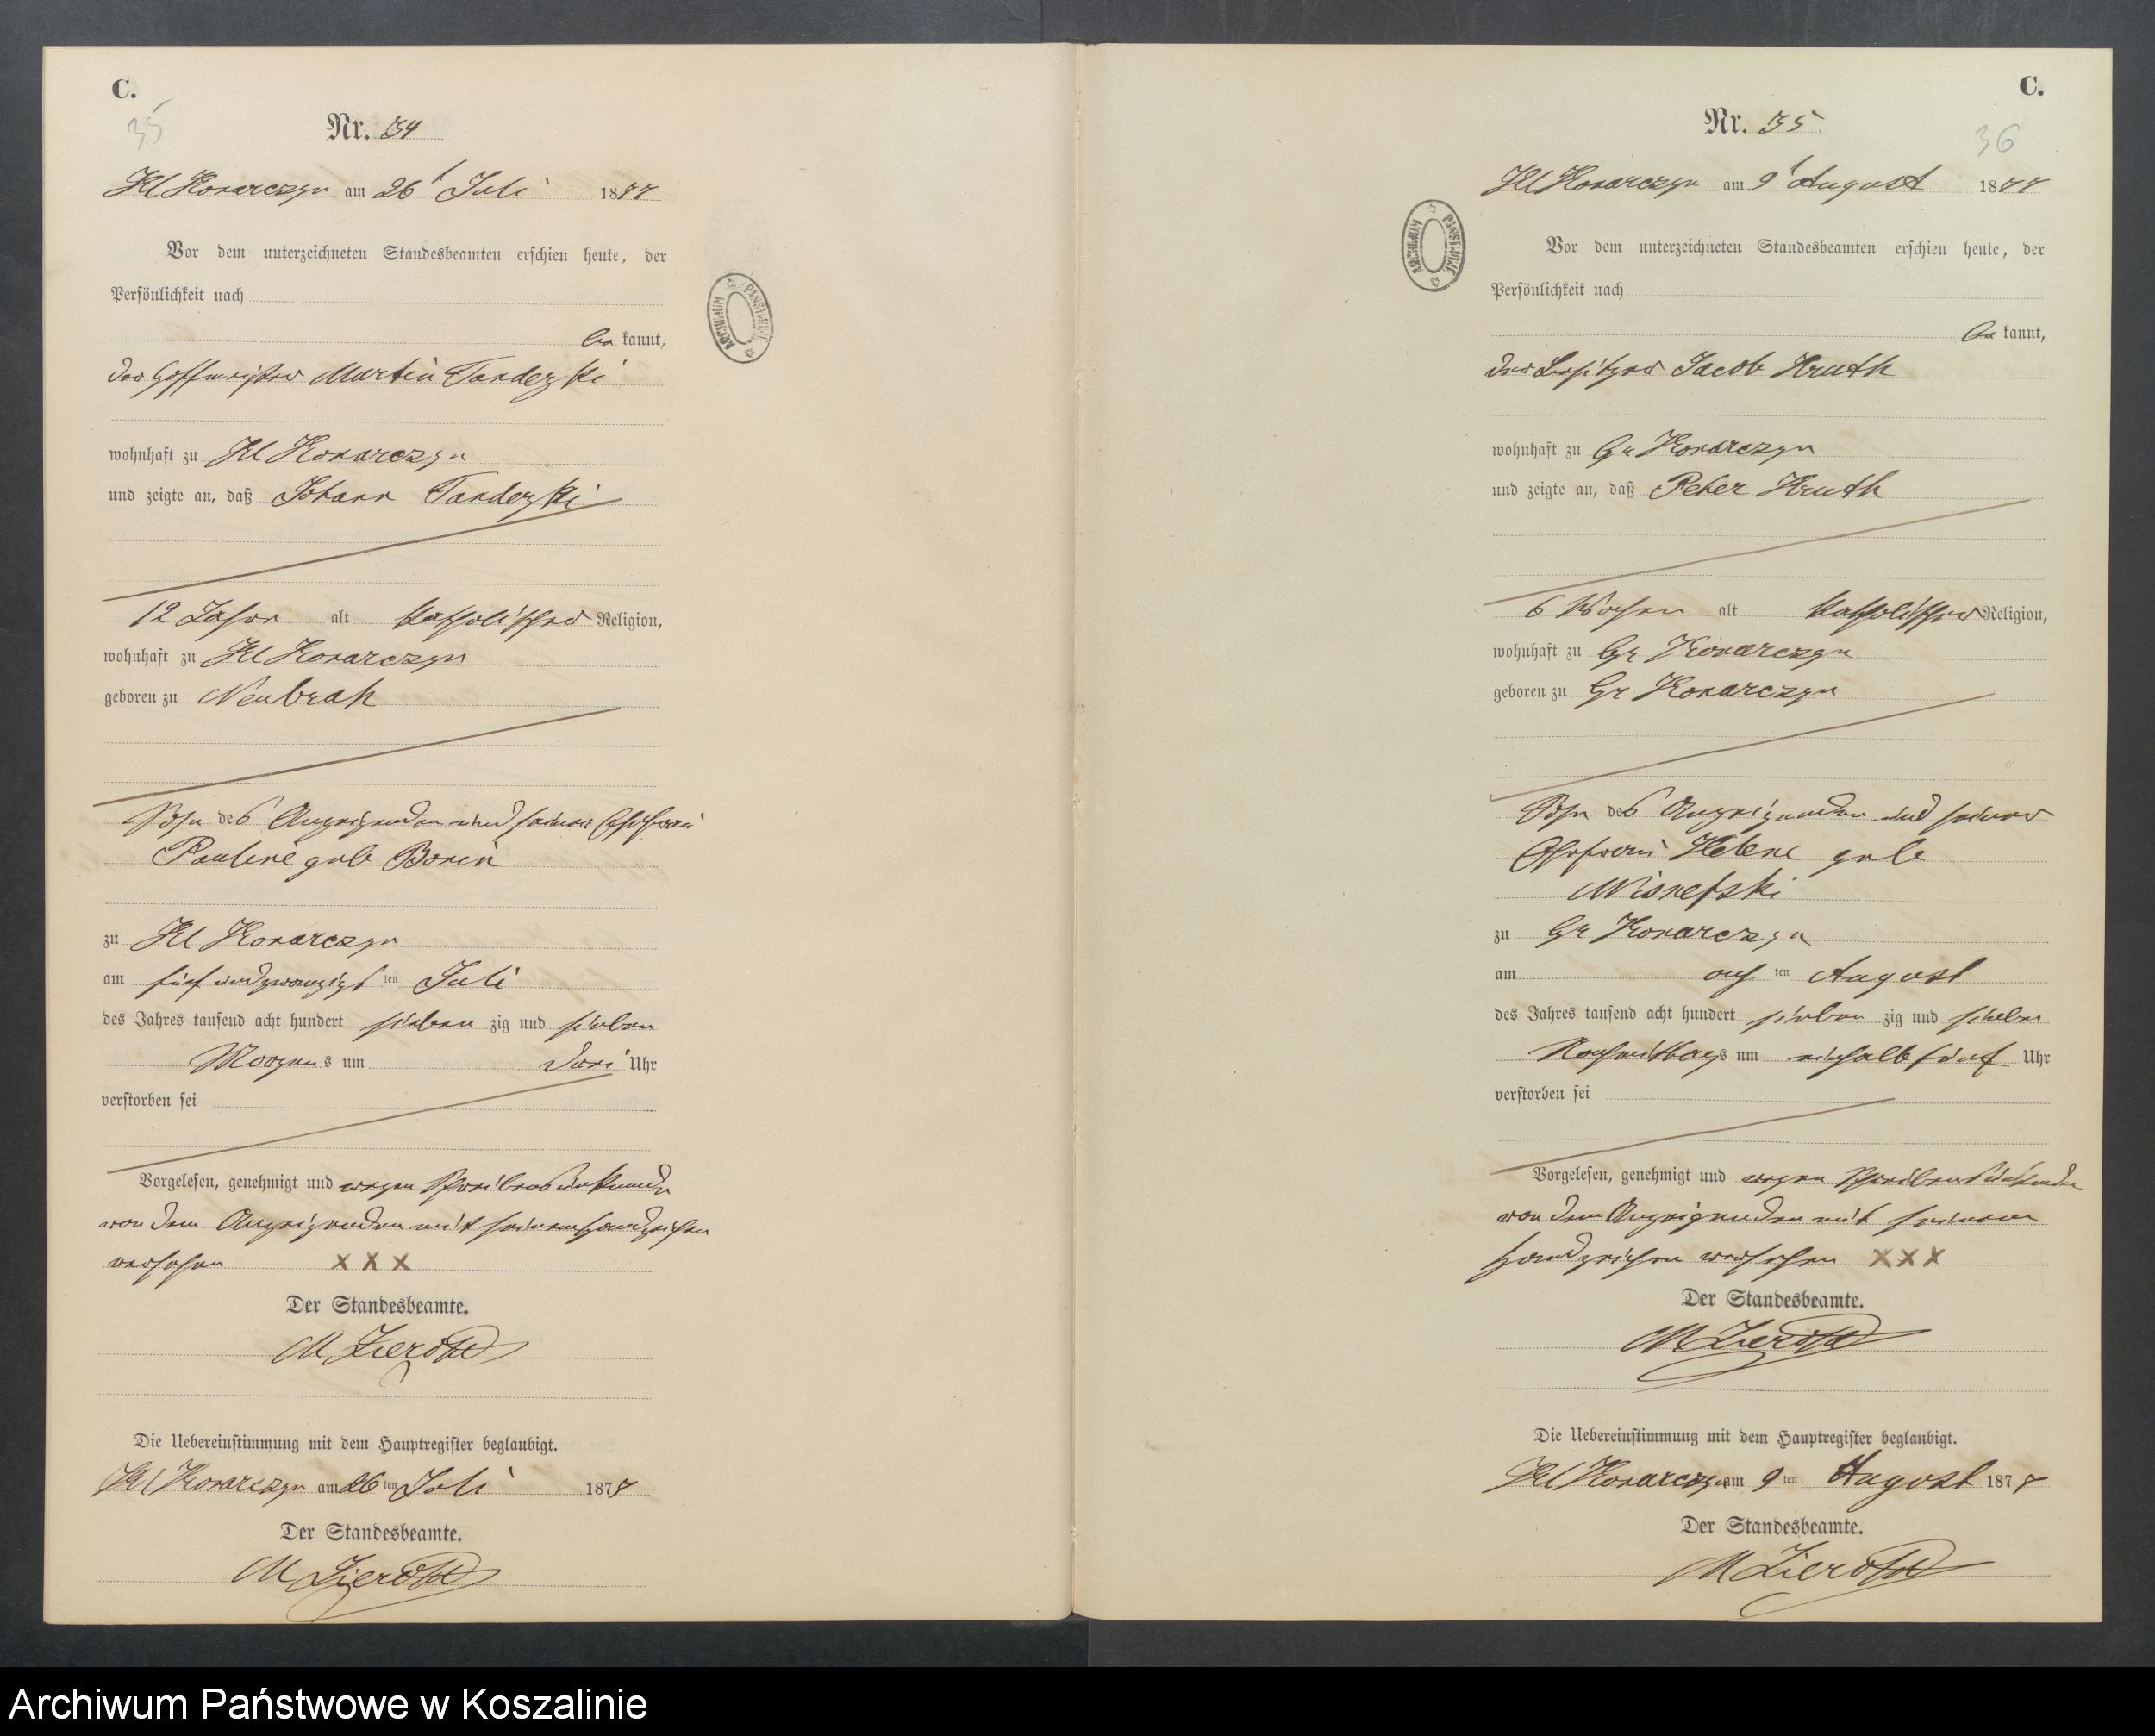 C.
35
Nr. 34
Kl Konarczyn am 26 t Juli 1877
Vor dem unterzeichneten Standesbeamten erschien heute, der
Persönlichkeit nach
be kannt,
der Hoffmeister Martin Tanderzki
wohnhaft zu Kl Konarczyn
und zeigte an, daß Johann Tanderzki
12 Jahre alt katholischer Religion,
wohnhaft zu Kl Konarczyn
geboren zu Neubrak
Sohn des Anzeigenden und seiner Ehefrau
Pauline geb Bonin
zu Kl Konarczyn
am fünf und zwanzigst ten Juli
des Jahres tausend acht hundert sieben zig und sieben
Morgens um drei Uhr
verstorben sei
Vorgelesen, genehmigt und wegen Schreibensunkunde
von dem Anzeigenden mit seinem Handzeichen
versehen x x x
Der Standesbeamte.
M Zieroth
Die Uebereinstimmung mit dem Hauptregister beglaubigt.
Kl Konarczyn am 26 ten Juli 1877
Der Standesbeamte.
M Zieroth
C.
36
Nr. 35
Kl Konarczyn am 9 t August 1877
Vor dem unterzeichneten Standesbeamten erschien heute, der
Persönlichkeit nach
be kannt,
der Besitzer Jacob Hruth
wohnhaft zu Gr Konarczyn
und zeigte an, daß Peter Hruth
6 Wochen alt katholischer Religion,
wohnhaft zu Gr Konarczyn
geboren zu Gr Konarczyn
Sohn des Anzeigenden und seiner
Ehefrau Helene geb
Wisnefski
zu Gr Konarczyn
am ach ten August
des Jahres tausend acht hundert sieben zig und sieben
Nachmittags um einhalb fünf Uhr
verstorben sei
Vorgelesen, genehmigt und wegen Schreibensunkunde
von dem Anzeigenden mit seinem
Handzeichen versehen x x x
Der Standesbeamte.
M Zieroth
Die Uebereinstimmung mit dem Hauptregister beglaubigt.
Kl Konarczyn am 9 ten August 1877
Der Standesbeamte.
M Zieroth
ARCHIWUM PAŃSTWOWE
ARCHIWUM PAŃSTWOWE
Archiwum Państwowe w Koszalinie